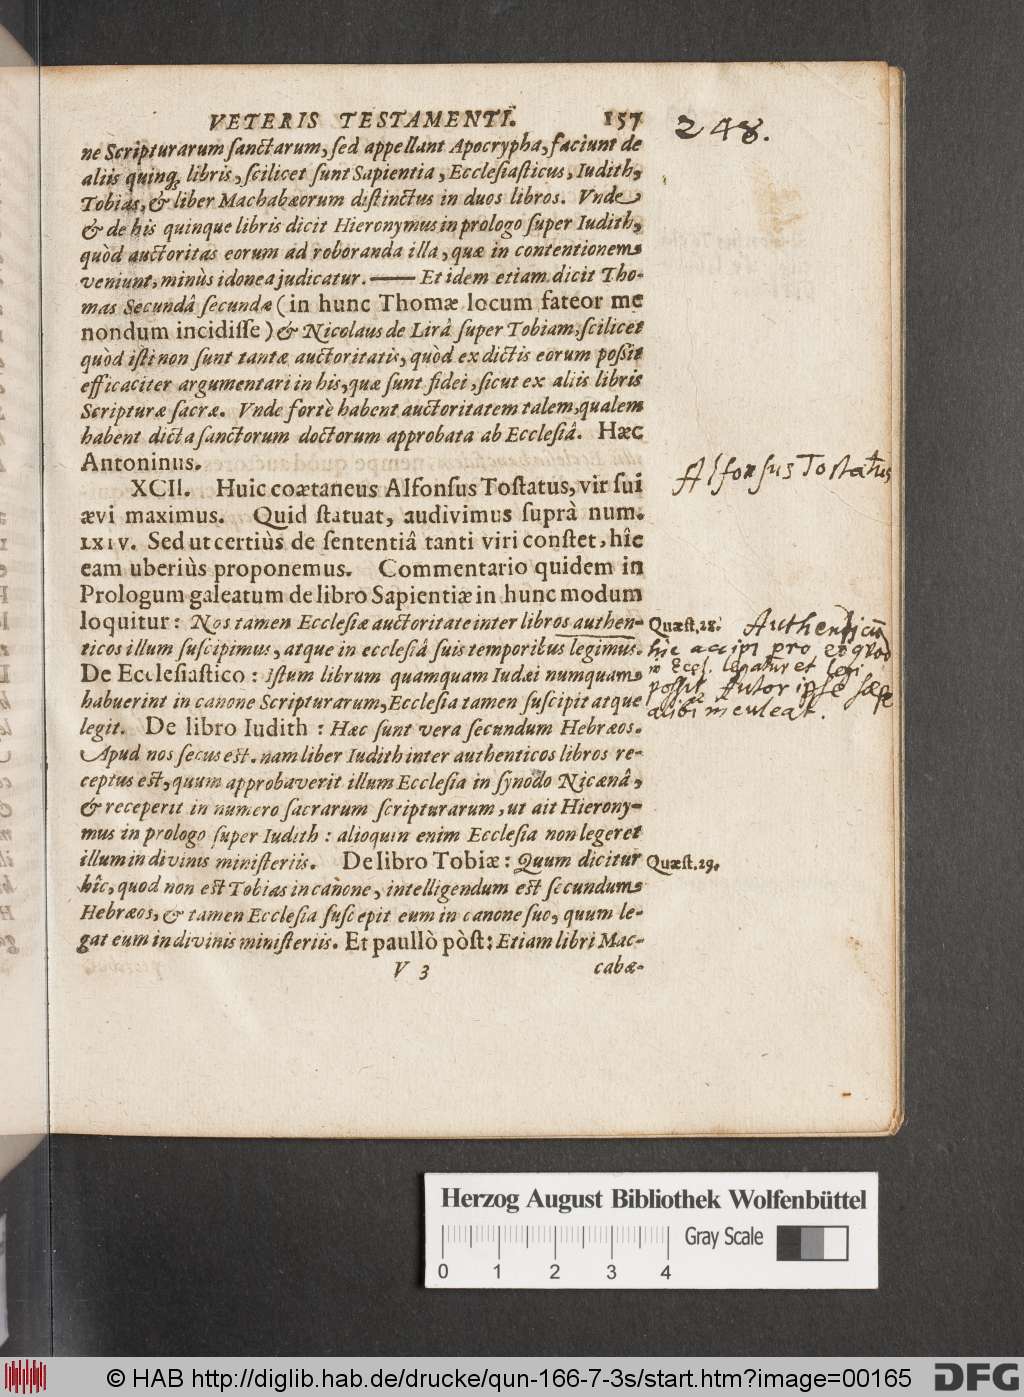 VETERIS TESTAMENTI. 157
248.
ne Scripturarum sanctarum, sed appellant Apocrypha, faciunt de
aliis quinq; libris, scilicet sunt Sapientia, Ecclesiasticus, Iudith,
Tobias, & liber Machabæorum distinctus in duos libros. Vnde
& de his quinque libris dicit Hieronymus in prologo super Iudith,
quòd auctoritas eorum ad roboranda illa, quæ in contentionem
veniunt, minùs idonea judicatur. —— Et idem etiam dicit Tho-
mas Secundâ secundæ (in hunc Thomæ locum fateor me
nondum incidisse) & Nicolaus de Lirâ super Tobiam, scilicet
quòd isti non sunt tantæ auctoritatis, quòd ex dictis eorum possit
efficaciter argumentari in his, quæ sunt fidei, sicut ex aliis libris
Scripturæ sacræ. Vnde fortè habent auctoritatem talem, qualem
habent dicta sanctorum doctorum approbata ab Ecclesiâ. Hæc
Antoninus.
XCII. Huic coætaneus Alfonsus Tostatus, vir sui
Alfonsus Tostatus
ævi maximus. Quid statuat, audivimus suprà num.
LXIV. Sed ut certiùs de sententiâ tanti viri constet, hîc
eam uberiùs proponemus. Commentario quidem in
Prologum galeatum de libro Sapientiæ in hunc modum
loquitur: Nos tamen Ecclesiæ auctoritate inter libros authen-
Quæst. 28. Authenticũ
ticos illum suscipimus, atque in ecclesiâ suis temporibus legimus.
hîc accipi pro eo quod
De Ecclesiastico: istum librum quamquam Iudæi numquam
in Eccl. legatur et legi
habuerint in canone Scripturarum, Ecclesia tamen suscipit atque
possit. Autor ipse sæpe
legit. De libro Iudith: Hæc sunt vera secundum Hebræos.
alibi inculcat.
Apud nos secus est. nam liber Iudith inter authenticos libros re-
ceptus est, quum approbaverit illum Ecclesia in synodo Nicænâ,
& receperit in numero sacrarum scripturarum, ut ait Hierony-
mus in prologo super Iudith: alioquin enim Ecclesia non legeret
illum in divinis ministeriis. De libro Tobiæ: Quum dicitur
Quæst. 29.
hîc, quod non est Tobias in canone, intelligendum est secundum
Hebræos, & tamen Ecclesia suscepit eum in canone suo, quum le-
gat eum in divinis ministeriis. Et paullò pòst: Etiam libri Mac-
V 3 cabæ-
Herzog August Bibliothek Wolfenbüttel
Gray Scale
0 1 2 3 4
© HAB http://diglib.hab.de/drucke/qun-166-7-3s/start.htm?image=00165
DFG